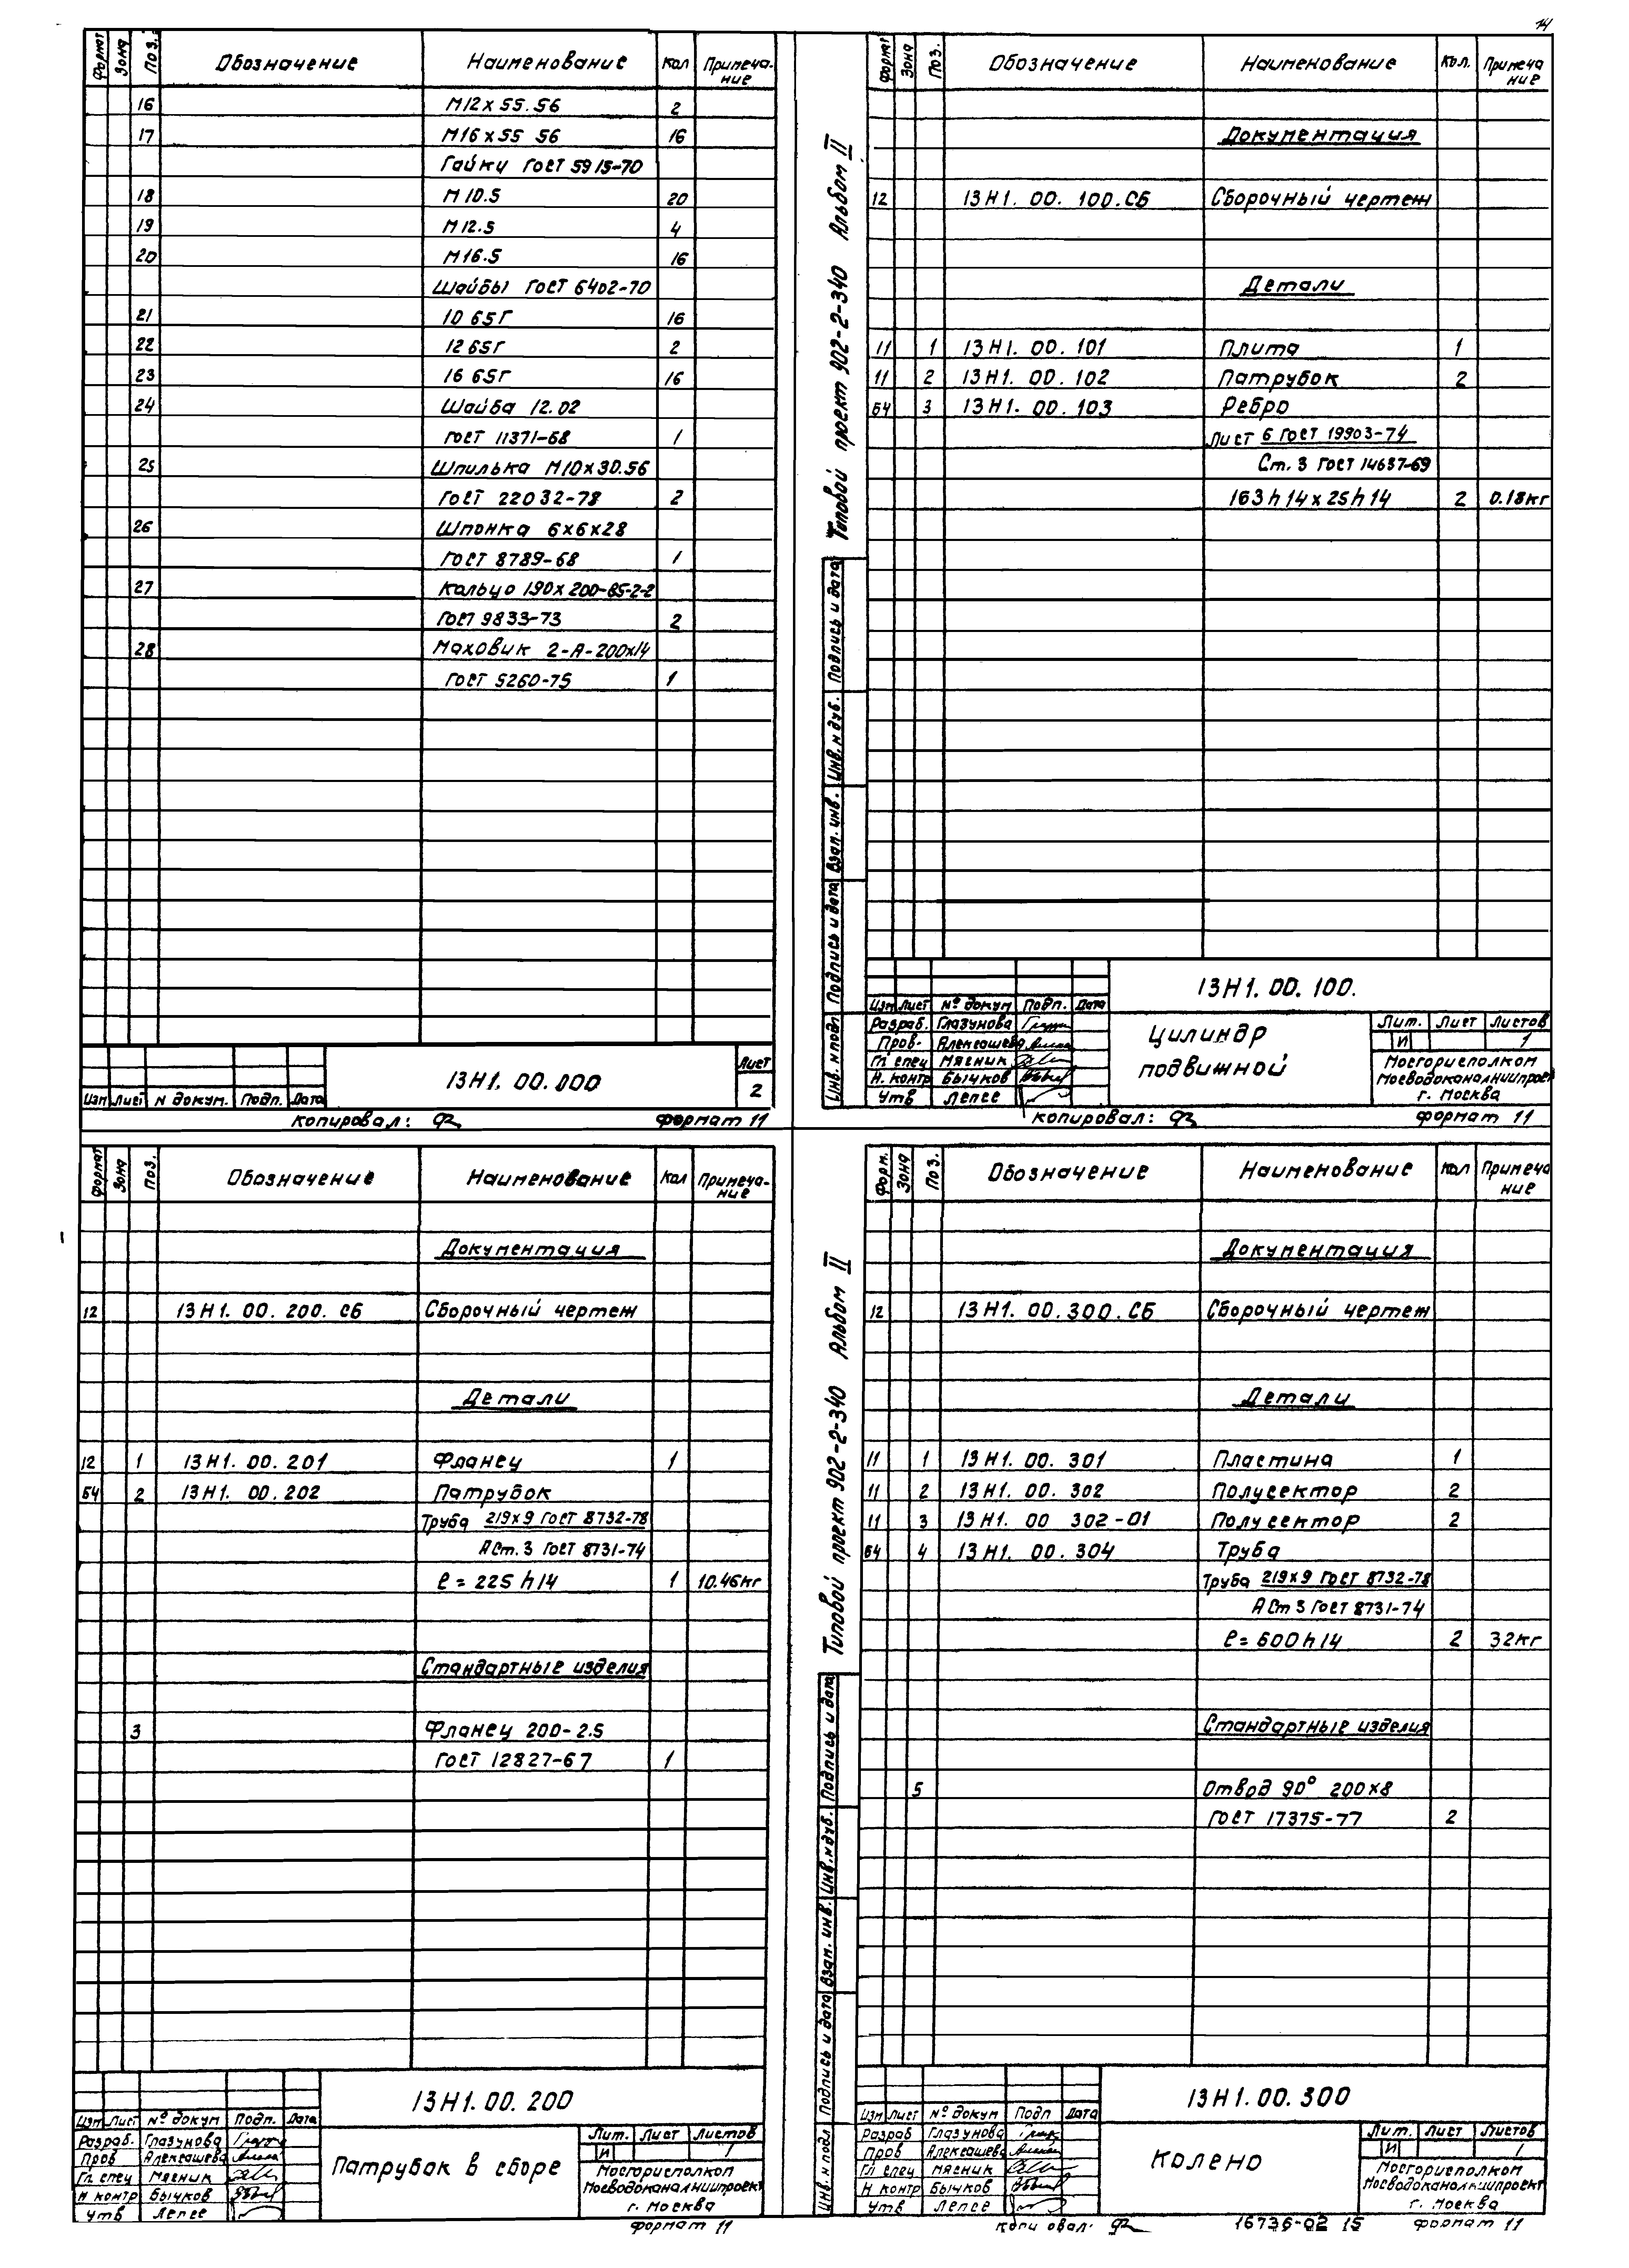 14
Формат Зона Поз. Обозначение Наименование Кол Примеча-
ние
16 М12х55.56 2
17 М16х55 56 16
Гайки ГОСТ 5915-70
18 М10.5 20
19 М12.5 4
20 М16.5 16
Шайбы ГОСТ 6402-70
21 10 65Г 16
22 12 65Г 2
23 16 65Г 16
24 Шайба 12.02
ГОСТ 11371-68 1
25 Шпилька М10х30.56
ГОСТ 22032-78 2
26 Шпонка 6х6х28
ГОСТ 8789-68 1
27 Кольцо 190х200-85-2-2
ГОСТ 9833-73 2
28 Маховик 2-А-200х14
ГОСТ 5260-75 1
13Н1.00.000
Лист
2
Изм Лист N докум. Подп. Дата
Копировал:
Формат 11
Типовой проект 902-2-340 Альбом II
Инв. N подл Подпись и дата Взам. инв. Инв. N дуб. Подпись и дата
Формат Зона Поз. Обозначение Наименование Кол. Примеча
ние
Документация
12 13Н1.00.100.СБ Сборочный чертеж
Детали
11 1 13Н1.00.101 Плита 1
11 2 13Н1.00.102 Патрубок 2
Б4 3 13Н1.00.103 Ребро
Лист 6 ГОСТ 19903-74
Ст. 3 ГОСТ 14637-69
163h14х25h14 2 0.18кг
13Н1.00.100.
Изм Лист № докум Подп. Дата
Разраб. Глазунова
Пров. Алексашева
Гл спец Мясник
Н. контр Бычков
Утв Лепее
Цилиндр
подвижной
Лит. Лист Листов
И 1
Мосгорисполком
Мосводоканалниипроект
г. Москва
Копировал:
Формат 11
Формат Зона Поз. Обозначение Наименование Кол Примеча-
ние
Документация
12 13Н1.00.200.СБ Сборочный чертеж
Детали
12 1 13Н1.00.201 Фланец 1
Б4 2 13Н1.00.202 Патрубок
Труба 219х9 ГОСТ 8732-78
А Ст. 3 ГОСТ 8731-74
ℓ=225h14 1 10.46кг
Стандартные изделия
3 Фланец 200-2.5
ГОСТ 12827-67 1
13Н1.00.200
Изм Лист № докум Подп. Дата
Разраб. Глазунова
Пров Алексашева
Гл. спец Мясник
Н контр Бычков
Утв Лепее
Патрубок в сборе
Лит. Лист Листов
И 1
Мосгорисполком
Мосводоканалниипроект
г. Москва
Формат 11
Типовой проект 902-2-340 Альбом II
Инв. N подл Подпись и дата Взам. инв. Инв. N дуб. Подпись и дата
Форм. Зона Поз. Обозначение Наименование Кол Примеча
ние
Документация
12 13Н1.00.300.СБ Сборочный чертеж
Детали
11 1 13Н1.00.301 Пластина 1
11 2 13Н1.00.302 Полусектор 2
11 3 13Н1.00 302-01 Полусектор 2
Б4 4 13Н1.00.304 Труба
Труба 219х9 ГОСТ 8732-78
А Ст 3 ГОСТ 8731-74
ℓ=600h14 2 32кг
Стандартные изделия
5 Отвод 90° 200х8
ГОСТ 17375-77 2
13Н1.00.300
Изм Лист № докум Подп Дата
Разраб Глазунова
Пров Алексашева
Гл спец Мясник
Н контр Бычков
Утв Лепее
Колено
Лит. Лист Листов
И 1
Мосгорисполком
Мосводоканалниипроект
г. Москва
Копировал:
16736-02 15
Формат 11